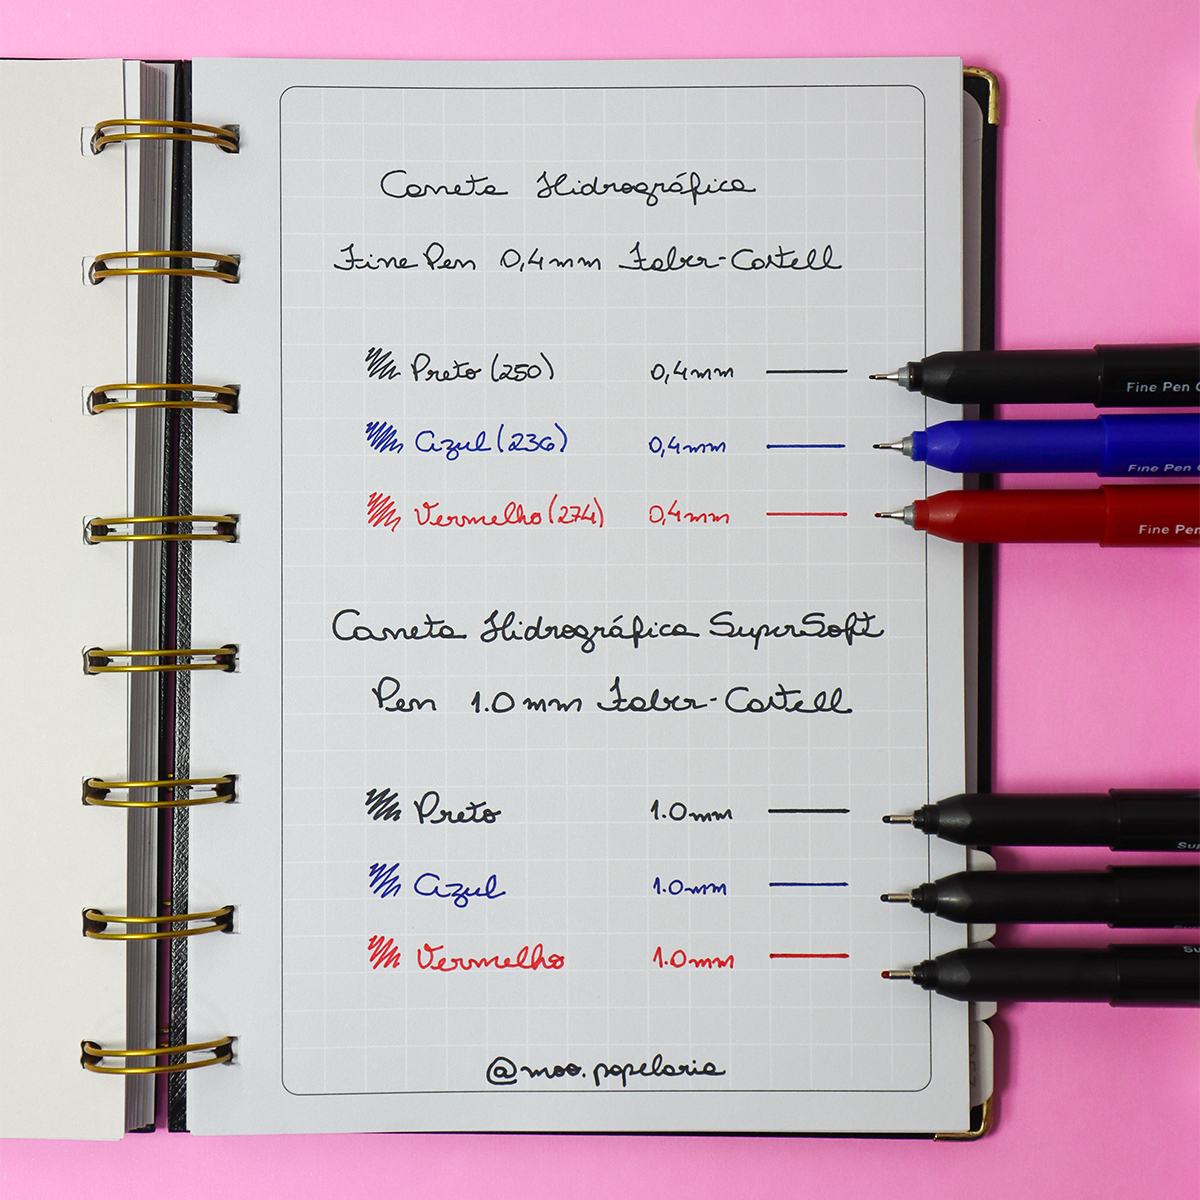 Caneta Hidrográfica
Fine Pen 0,4mm Faber-Castell
Preto (250) 0,4mm
Fine Pen
Azul (236) 0,4mm
Fine Pen
Vermelho (274) 0,4mm
Fine Pen
Caneta Hidrográfica SuperSoft
Pen 1.0mm Faber-Castell
Preto 1.0mm
Azul 1.0mm
Vermelho 1.0mm
@moo.papelaria